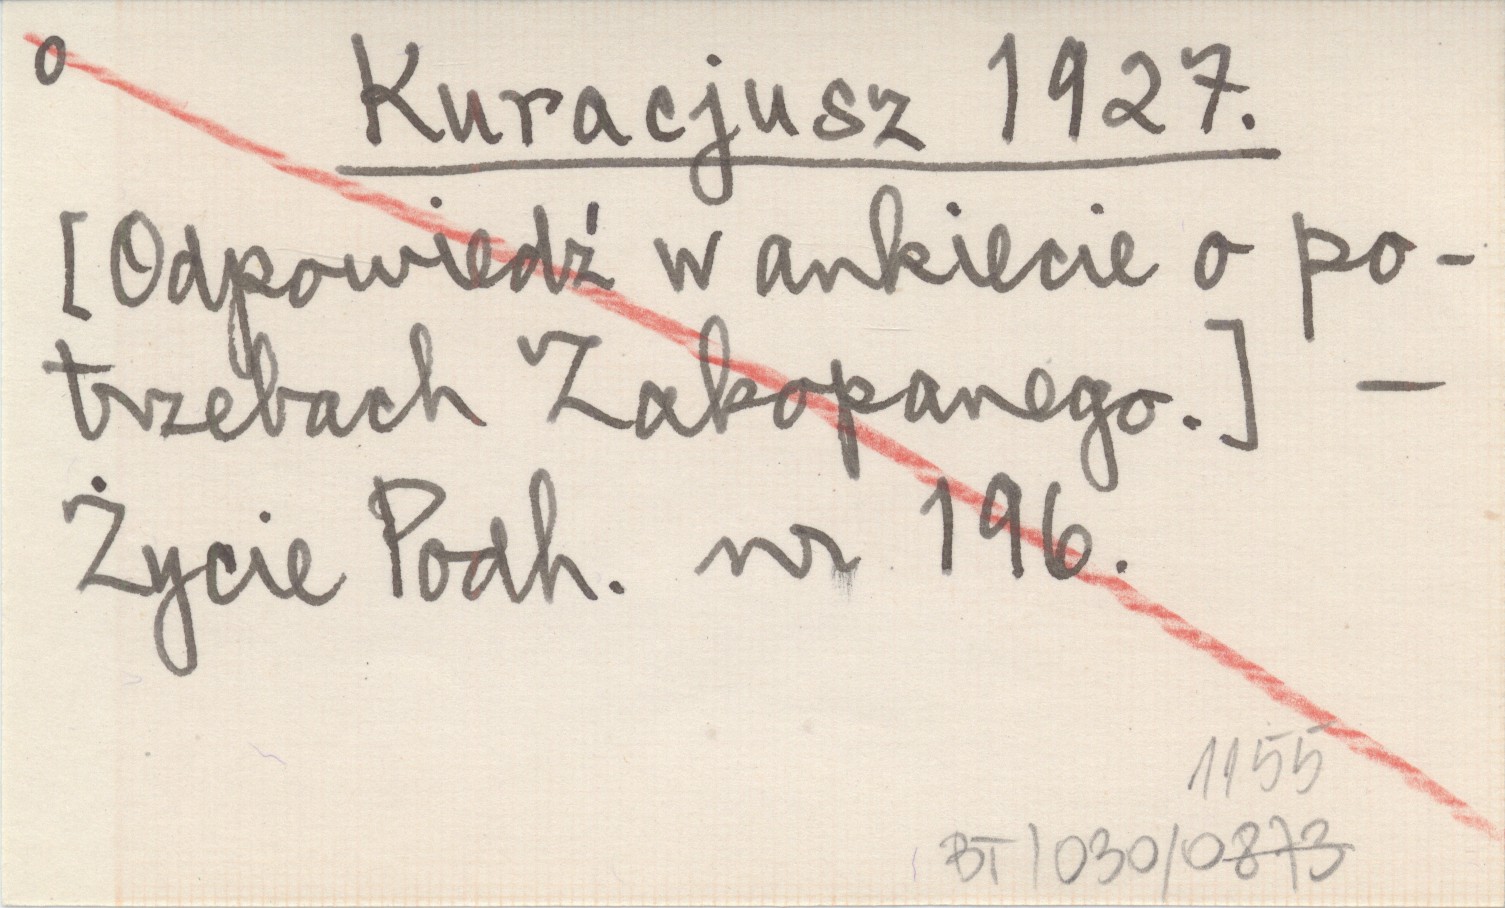 o
Kuracjusz 1927.
[Odpowiedź w ankiecie o po-
trzebach Zakopanego.] —
Życie Podh. nr 196.
1155
BT/030/0873